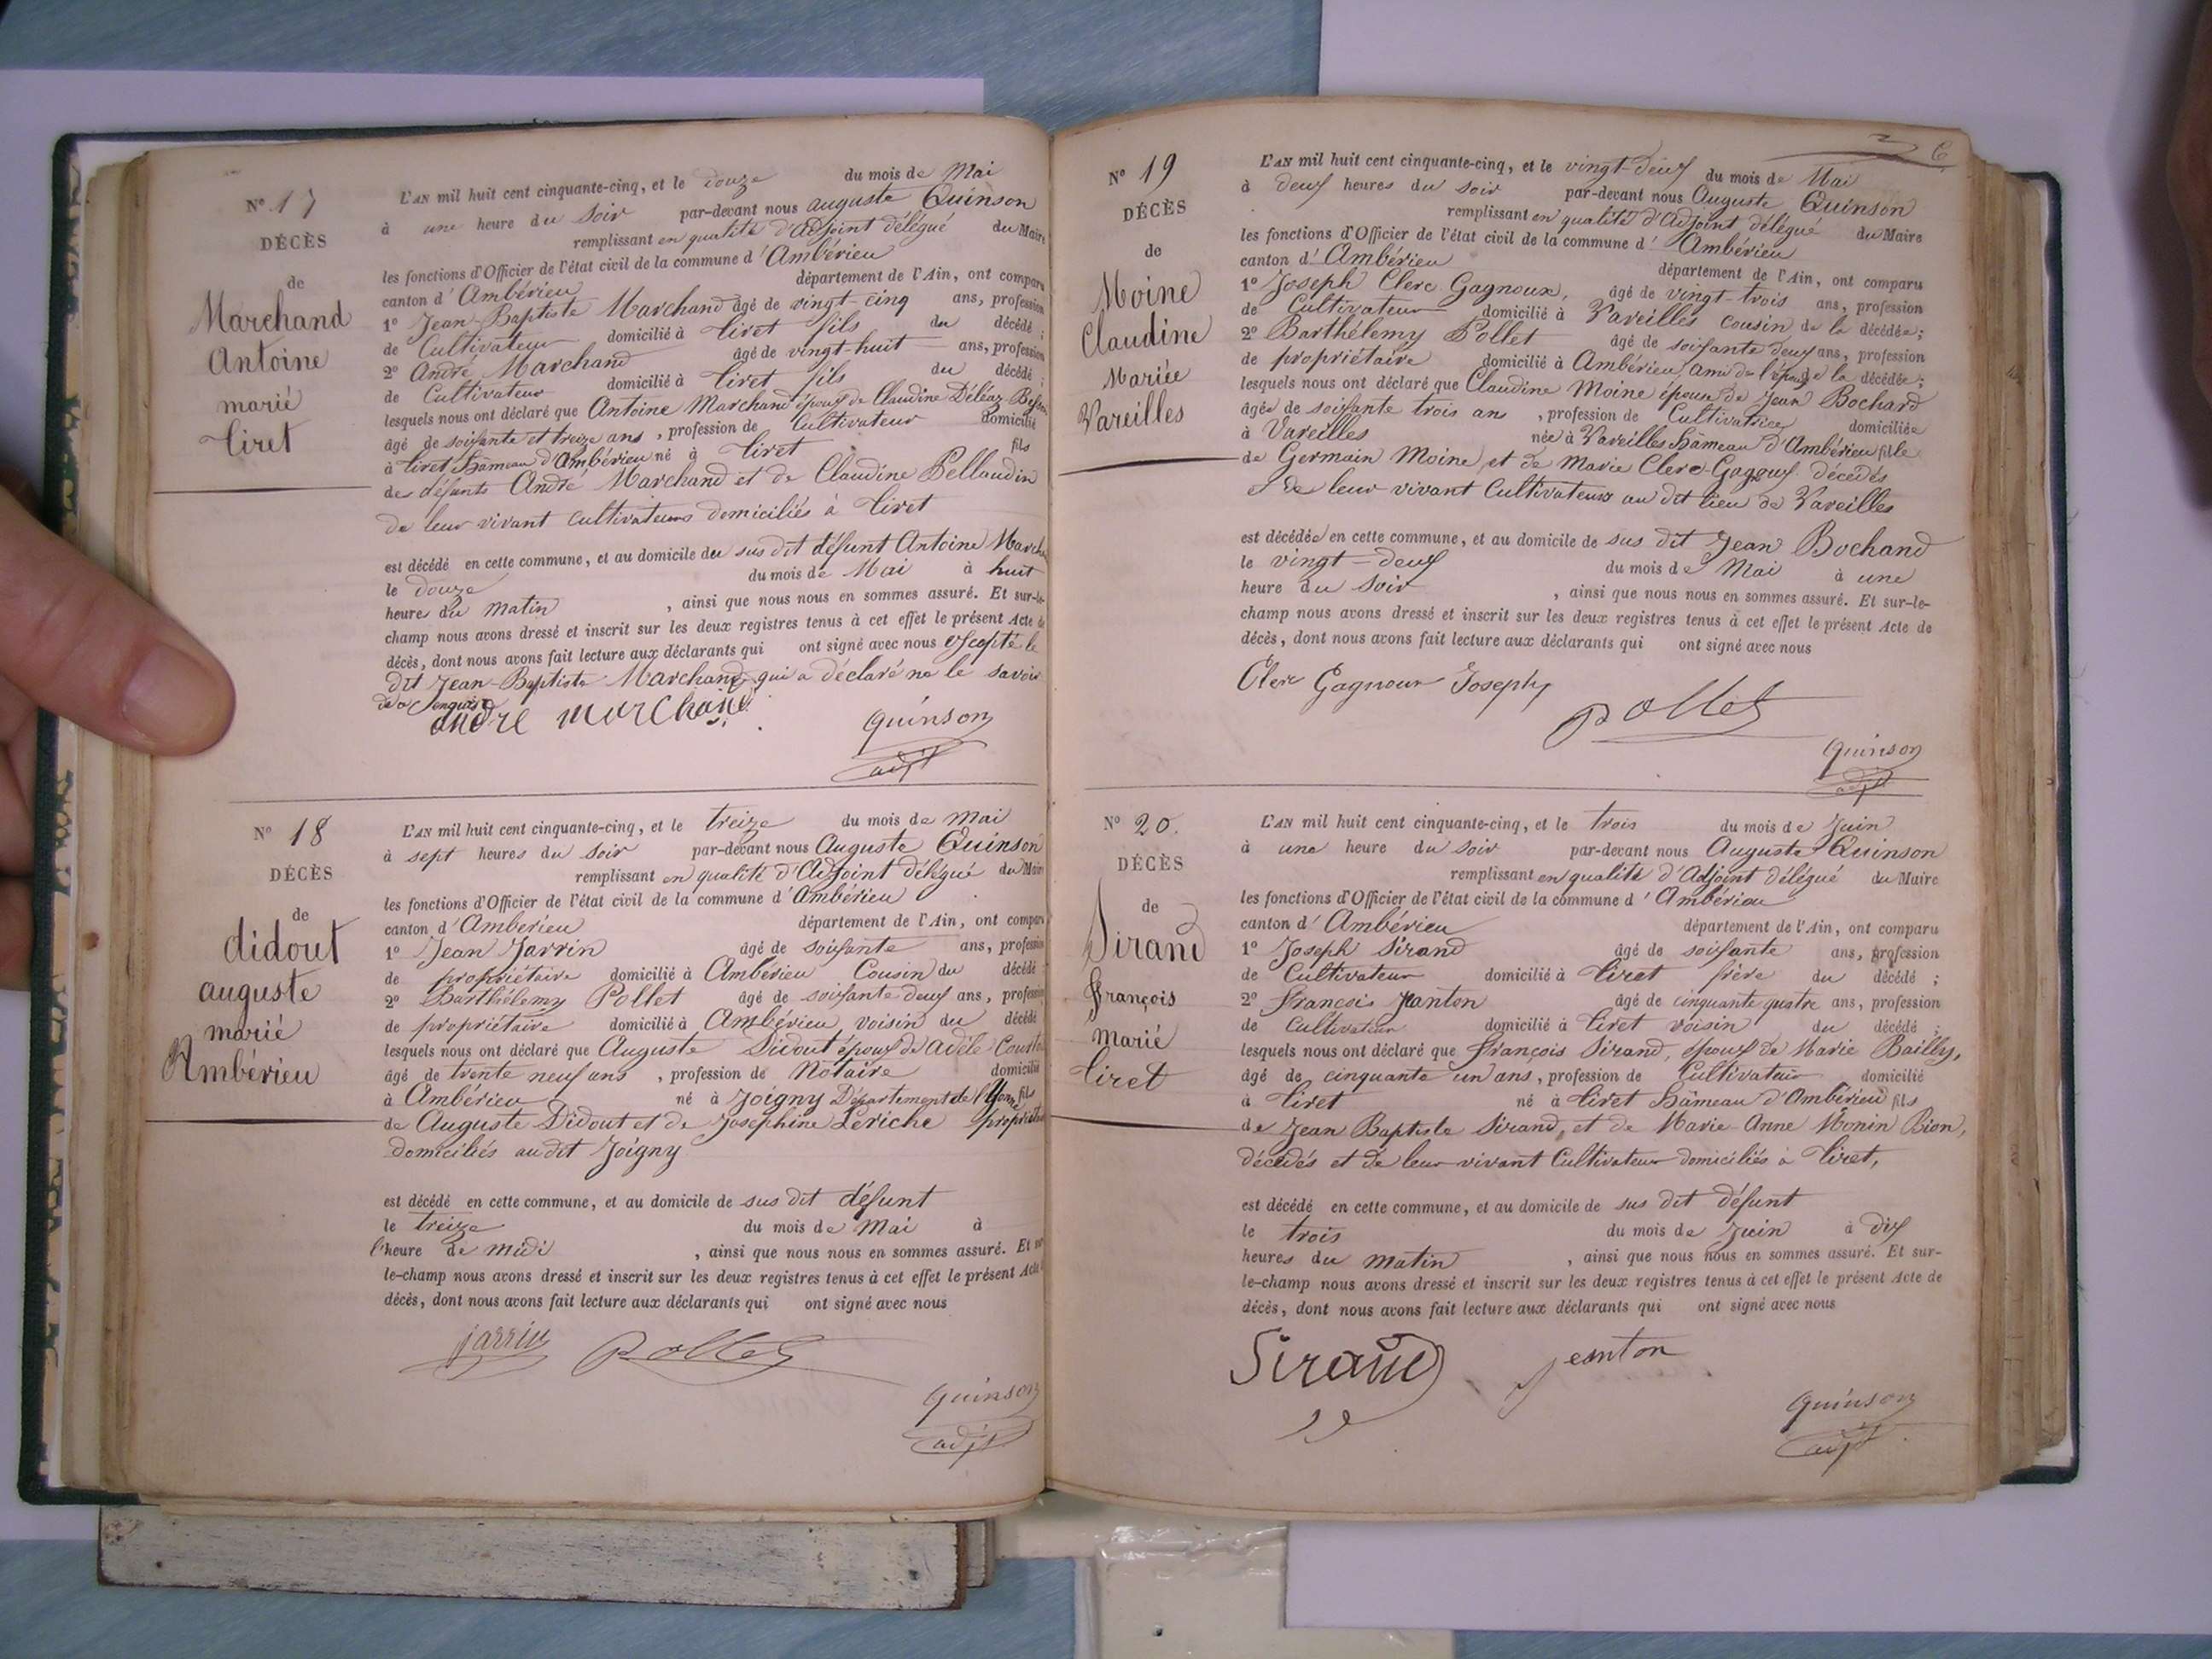 Nº 17
DÉCÈS
de
Marchand
Antoine
marié
Tiret
L'AN mil huit cent cinquante-cinq, et le douze du mois de Mai
à une heure du soir par-devant nous auguste Quinson
remplissant en qualité d'Adjoint délégué du Maire
les fonctions d'Officier de l'état civil de la commune d'Ambérieu
canton d'Ambérieu département de l'Ain, ont comparu
1º Jean-Baptiste Marchand âgé de vingt-cinq ans, profession
de Cultivateur domicilié à Tiret fils du décédé ;
2º André Marchand âgé de vingt-huit ans, profession
de Cultivateur domicilié à Tiret fils du décédé ;
lesquels nous ont déclaré que Antoine Marchand époux de Claudine Déléaz
âgé de soixante et treize ans, profession de Cultivateur domicilié
à Tiret hâmeau d'Ambérieu né à Tiret fils
de défunts André Marchand et de Claudine Pellaudin
de leur vivant cultivateurs domiciliés à Tiret
est décédé en cette commune, et au domicile du sus dit défunt Antoine
le douze du mois de Mai à huit
heures du matin, ainsi que nous nous en sommes assuré. Et sur-le-
champ nous avons dressé et inscrit sur les deux registres tenus à cet effet le présent Acte de
décès, dont nous avons fait lecture aux déclarants qui ont signé avec nous excepté le
dit Jean-Baptiste Marchand, qui a déclaré ne le savoir
de ce enquis
andre marchand
quinson
adjt
Nº 18
DÉCÈS
de
didout
auguste
marié
Ambérieu
L'AN mil huit cent cinquante-cinq, et le treize du mois de Mai
à sept heures du soir par-devant nous Auguste Quinson
remplissant en qualité d'Adjoint délégué du Maire
les fonctions d'Officier de l'état civil de la commune d'Ambérieu
canton d'Ambérieu département de l'Ain, ont comparu
1º Jean Jarrin âgé de soixante ans, profession
de propriétaire domicilié à Ambérieu Cousin du décédé
2º Barthélemy Pollet âgé de soixante deux ans, profession
de propriétaire domicilié à Ambérieu voisin du décédé
lesquels nous ont déclaré que Auguste Didout époux de Adèle
âgé de trente neuf ans, profession de Notaire domicilié
à Ambérieu né à Joigny Département de l'Yonne fils
de Auguste Didout et de Josephine Leriche
domiciliés audit Joigny
est décédé en cette commune, et au domicile de sus dit défunt
le treize du mois de Mai à
l'heure de midi, ainsi que nous nous en sommes assuré. Et sur
le-champ nous avons dressé et inscrit sur les deux registres tenus à cet effet le présent Acte
décès, dont nous avons fait lecture aux déclarants qui ont signé avec nous
jarrin Pollet
quinson
adjt
Nº 19
DÉCÈS
de
Moine
Claudine
Mariée
Vareilles
L'AN mil huit cent cinquante-cinq, et le vingt-deux du mois de Mai
à deux heures du soir par-devant nous Auguste Quinson
remplissant en qualité d'Adjoint délégué du Maire
les fonctions d'Officier de l'état civil de la commune d'Ambérieu
canton d'Ambérieu département de l'Ain, ont comparu
1º Joseph Clerc Gagnoux, âgé de vingt-trois ans, profession
de Cultivateur domicilié à Vareilles cousin de la décédée ;
2º Barthélemy Pollet âgé de soixante deux ans, profession
de propriétaire domicilié à Ambérieu, ami de l'époux de la décédée ;
lesquels nous ont déclaré que Claudine Moine épouse de Jean Bochard
âgée de soixante trois ans, profession de Cultivatrice domiciliée
à Vareilles née à Vareilles hâmeau d'Ambérieu fille
de Germain Moine, et de Marie Clerc-Gagnoux décédés
et de leur vivant Cultivateurs au dit lieu de Vareilles
est décédée en cette commune, et au domicile de sus dit Jean Bochard
le vingt-deux du mois de Mai à une
heure du soir, ainsi que nous nous en sommes assuré. Et sur-le-
champ nous avons dressé et inscrit sur les deux registres tenus à cet effet le présent Acte de
décès, dont nous avons fait lecture aux déclarants qui ont signé avec nous
Clerc Gagnoux Joseph
Pollet
quinson
adjt
Nº 20.
DÉCÈS
de
Sirand
François
Marié
Tiret
L'AN mil huit cent cinquante-cinq, et le trois du mois de Juin
à une heure du soir par-devant nous Auguste Quinson
remplissant en qualité d'Adjoint délégué du Maire
les fonctions d'Officier de l'état civil de la commune d'Ambérieu
canton d'Ambérieu département de l'Ain, ont comparu
1º Joseph Sirand âgé de soixante ans, profession
de Cultivateur domicilié à Tiret frère du décédé ;
2º François Janton âgé de cinquante quatre ans, profession
de Cultivateur domicilié à Tiret voisin du décédé ;
lesquels nous ont déclaré que François Sirand, époux de Marie Bailly,
âgé de cinquante un ans, profession de Cultivateur domicilié
à Tiret né à Tiret hâmeau d'Ambérieu fils
de Jean Baptiste Sirand, et de Marie-Anne Monin Bion,
décédés et de leur vivant Cultivateurs domiciliés à Tiret,
est décédé en cette commune, et au domicile de sus dit défunt
le trois du mois de Juin à dix
heures du matin, ainsi que nous nous en sommes assuré. Et sur-
le-champ nous avons dressé et inscrit sur les deux registres tenus à cet effet le présent Acte de
décès, dont nous avons fait lecture aux déclarants qui ont signé avec nous
Sirand jeanton
quinson
adjt